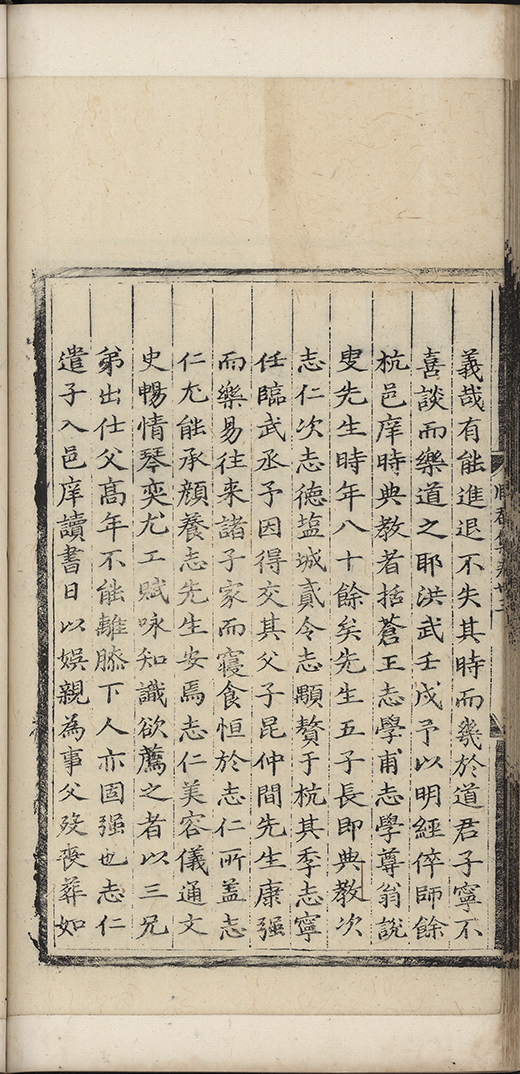 義哉有能進退不失其時而幾於道君子寧不
喜談而樂道之耶洪武壬戌予以明經倅師餘
杭邑庠時典教者括蒼王志學甫志學尊翁說
叟先生時年八十餘矣先生五子長即典教次
志仁次志德塩城貳令志顒贅于杭其季志寧
任臨武丞予因得交其父子昆仲間先生康强
而樂易往來諸子家而寢食恒於志仁所盖志
仁尤能承顔養志先生安焉志仁美容儀通文
史暢情琴奕尤工賦咏知識欲薦之者以三兄
弟出仕父髙年不能離膝下人亦固强也志仁
遣子入邑庠讀書日以娱親為事父歿喪葬如